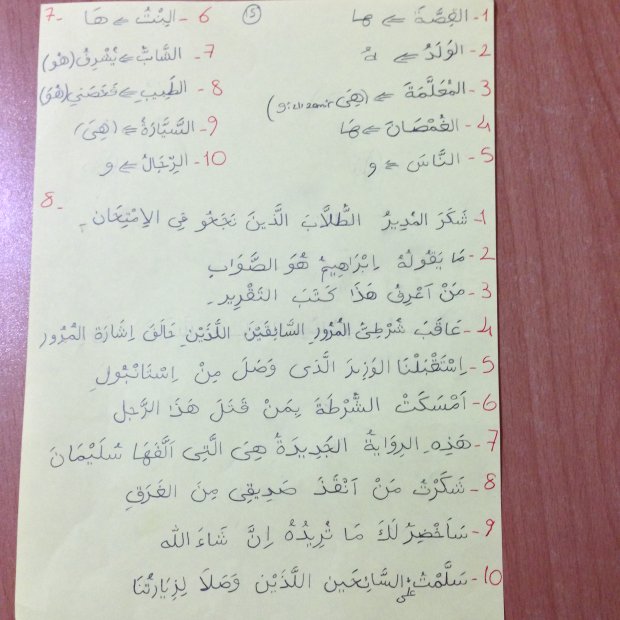 7-
15
1- القِصَّةَ ⇐ هَا
2- الوَلَدُ ⇐ هُ
3- المُعَلَّمَةَ ⇐ (هِيَ)
4- القُمْصَانَ ⇐ هَا
5- النَّاسَ ⇐ و
6- البِنْتُ ⇐ هَا
7- الشَّابُّ ⇐ يُشْرِفُ (هُوَ)
8- الطَبِيبِ ⇐ فَحَصَنِي (هُوَ)
9- السَّيَّارَةُ ⇐ (هِيَ)
10- الرِّجَالُ ⇐ و
8-
1- شَكَرَ المُدِيرُ الطُّلَّابَ الَّذِينَ نَجَحُو فِي الاِمْتِحَانِ.
2- مَا يَقُولُهُ اِبْرَاهِيمُ هُوَ الصَّوَابِ
3- مَنْ اَعْرِفُ هَذَا كَتَبَ التَقْرِير.
4- عَاقَبَ شُرْطِيُّ المُرُورِ السَّائِقَيْنِ اللَّذَيْنِ خَالَقَ اِشَارَةَ المُرُورِ
5- اِسْتَقْبَلْنَا الوَزِيرَ الَّذَى وَصَلَ مِنْ اِسْتَانْبُولِ
6- اَمْسَكَتْ الشُّرْطَةَ بِمَنْ قَتَلَ هَذَا الرَّجل
7- هَذِهِ الرِوَايَةُ الجَدِيدَةُ هِيَ الَّتِى اَلَّفَهَا سُلَيْمَانَ
8- شَكَرْتُ مَنْ اَنْقَذَ صَدِيقِى مِنَ الغَرَقِ
9- سَاَحْضِرُ لَكَ مَا تُرِيدُهُ اِنَّ شَاءَ الله
10- سَلَّمْتُ عَلَى السَّائِحَينِ اللَّذَيْنِ وَصَلَا لِزِيَارَتُنَا